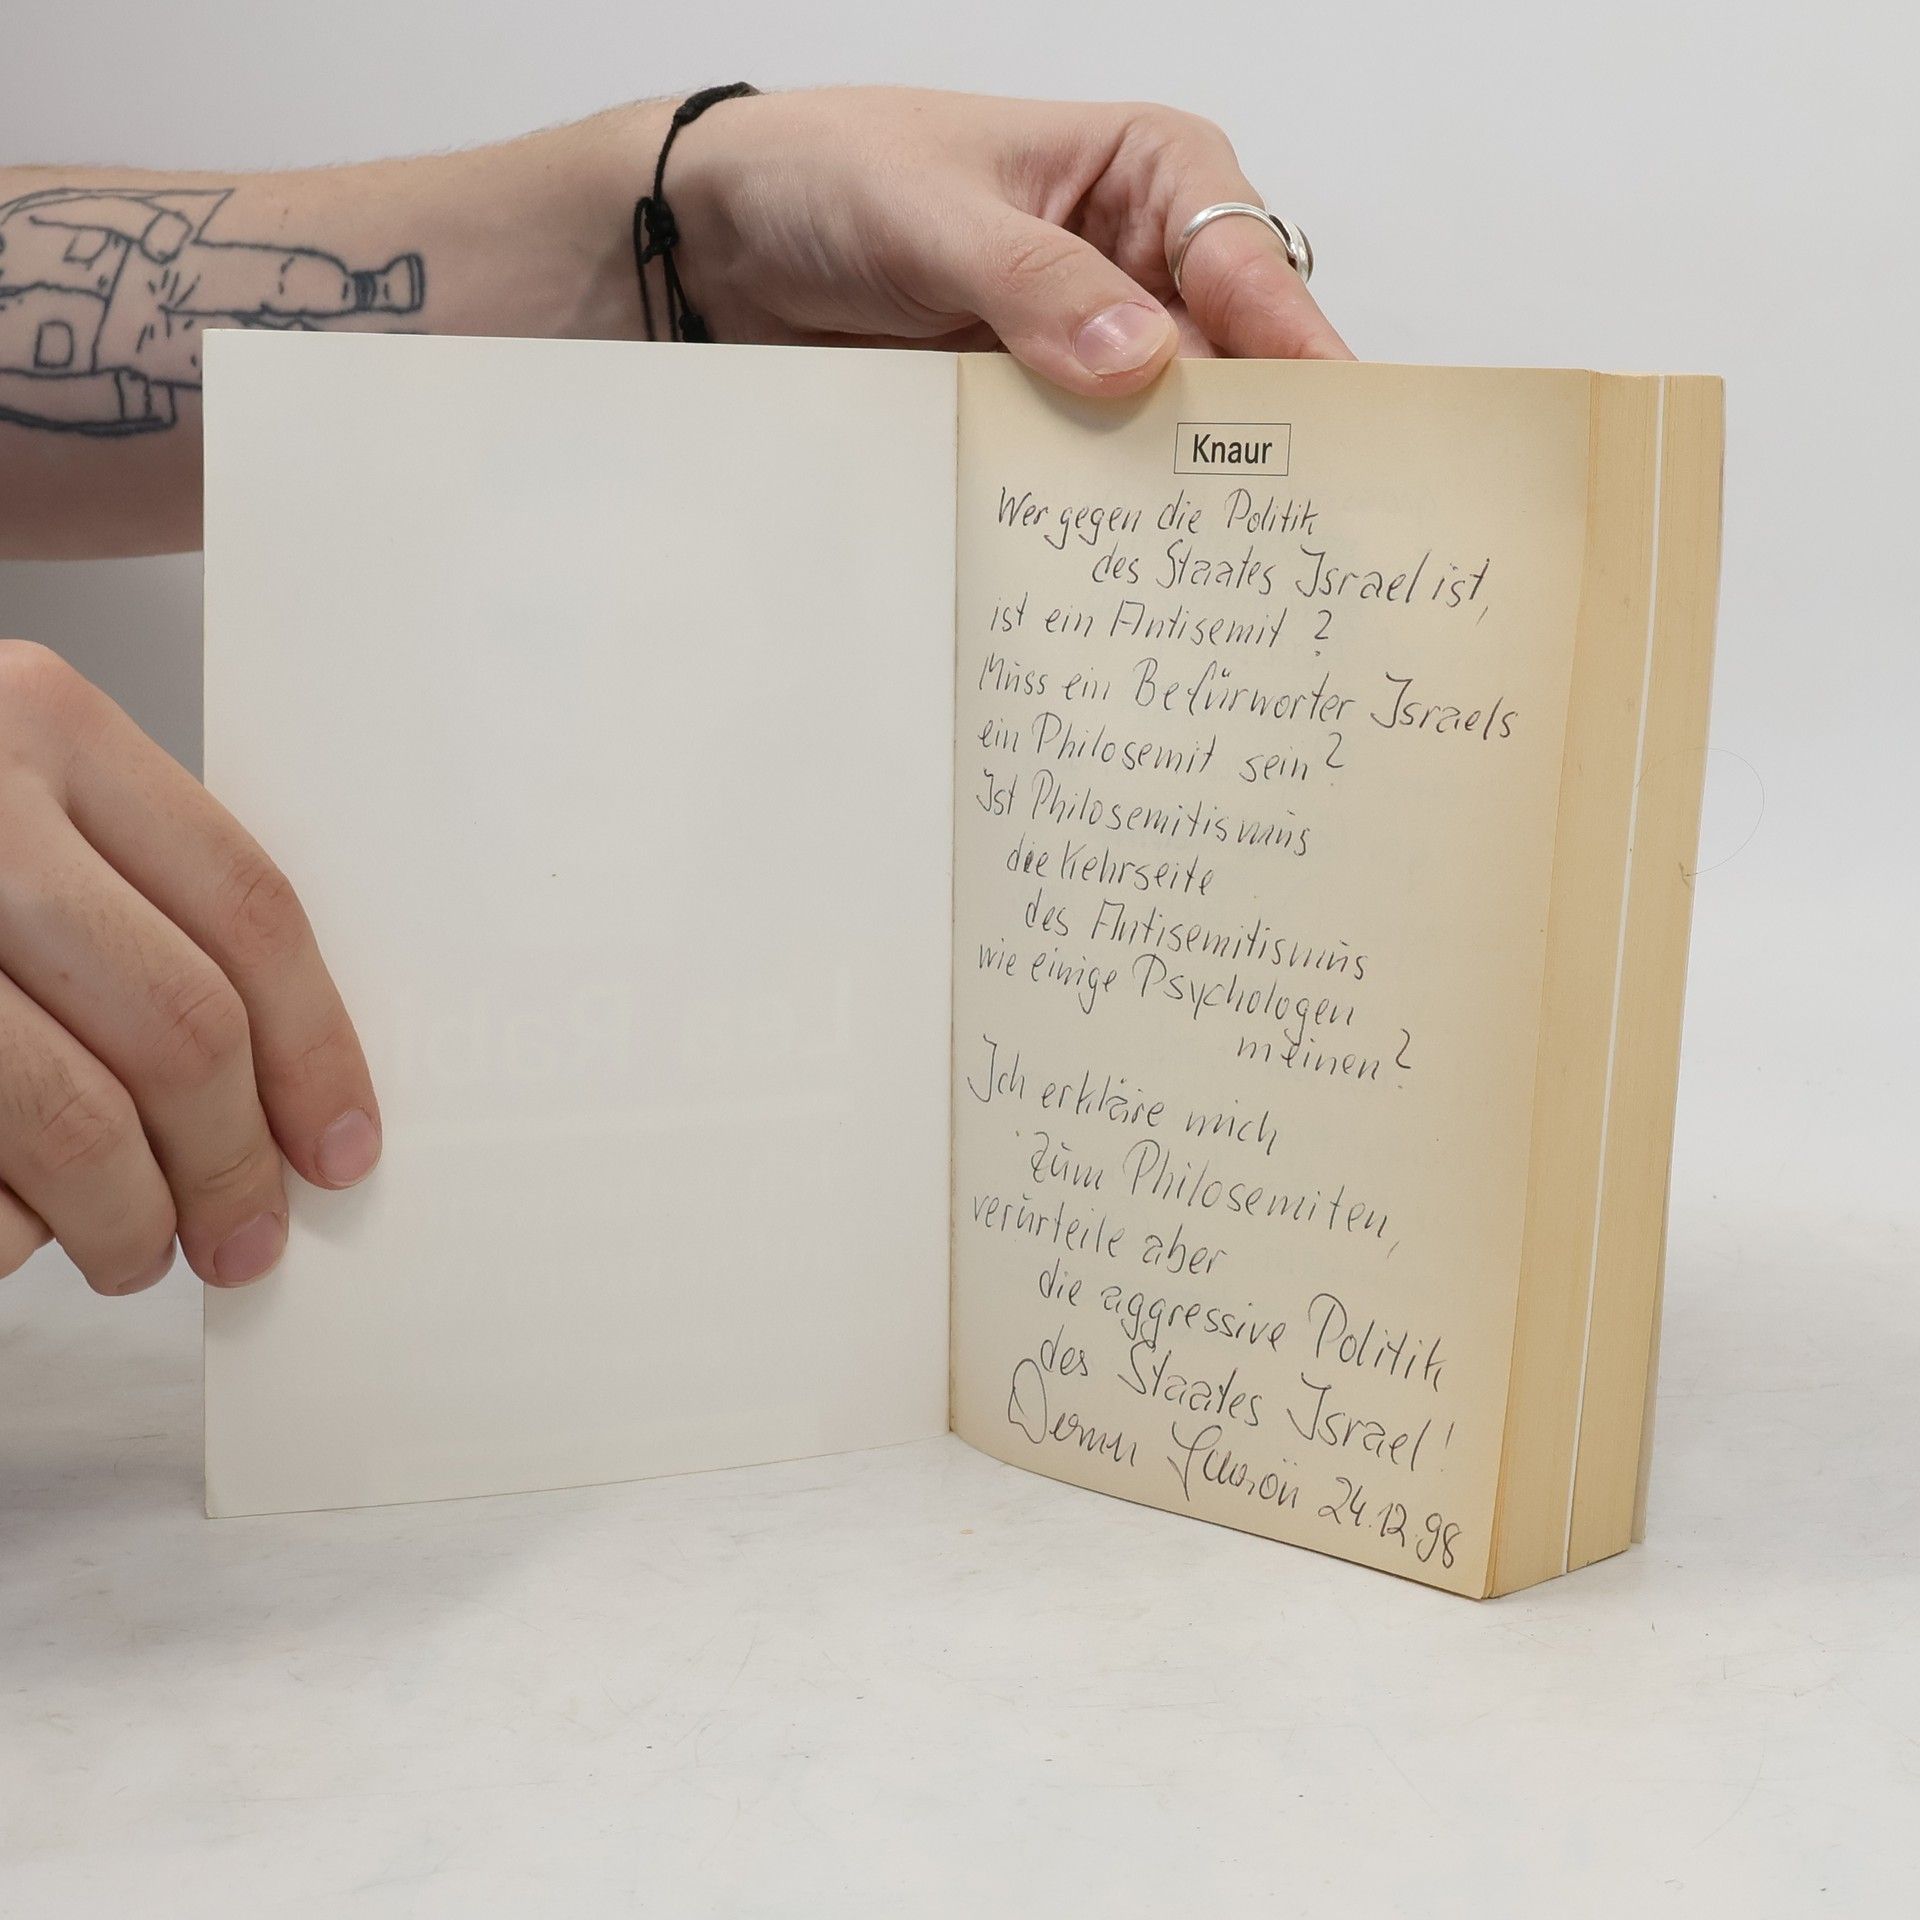 Knaur
Wer gegen die Politik
des Staates Israel ist,
ist ein Antisemit ?
Muss ein Befürworter Israels
ein Philosemit sein ?
Ist Philosemitismus
die Kehrseite
des Antisemitismus
wie einige Psychologen
meinen ?
Ich erkläre mich
zum Philosemiten,
verurteile aber
die aggressive Politik
des Staates Israel !
24.12.98